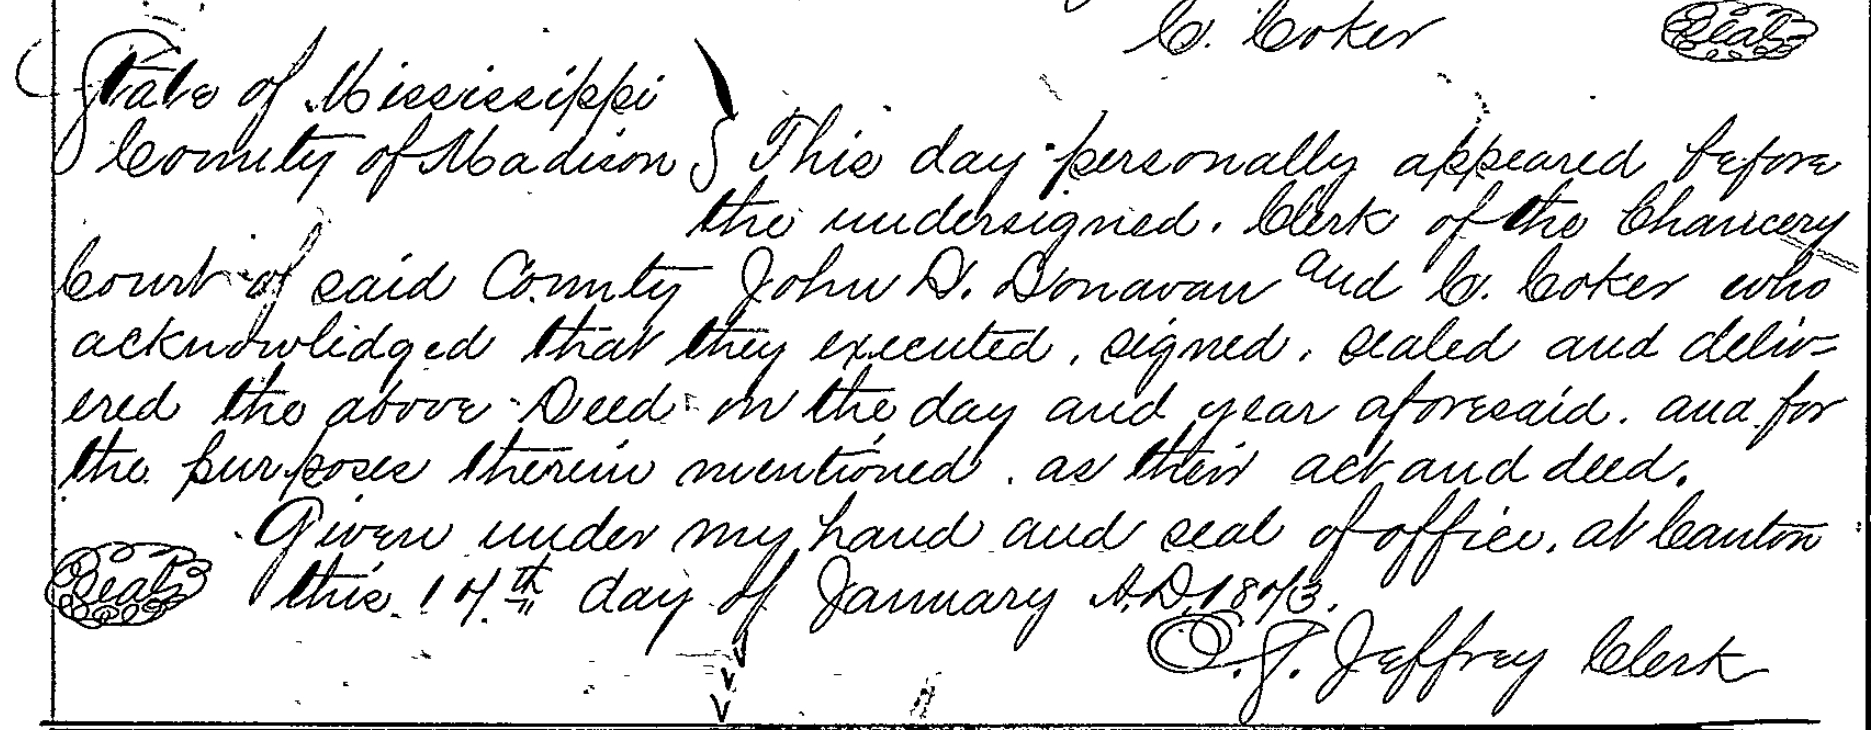 C. Coker Seal
State of Mississippi
County of Madison } This day personally appeared before
the undersigned. Clerk of the Chancery
Court of said County John D. Donavan and C. Coker who
acknowlidged that they executed, signed, sealed and deliv=
ered the above Deed on the day and year aforesaid. and for
the purposes therein mentioned. as their act and deed.
Given under my hand and seal of office, at Canton
Seal this 17th day of January A.D. 1873.
Jeffrey Clerk